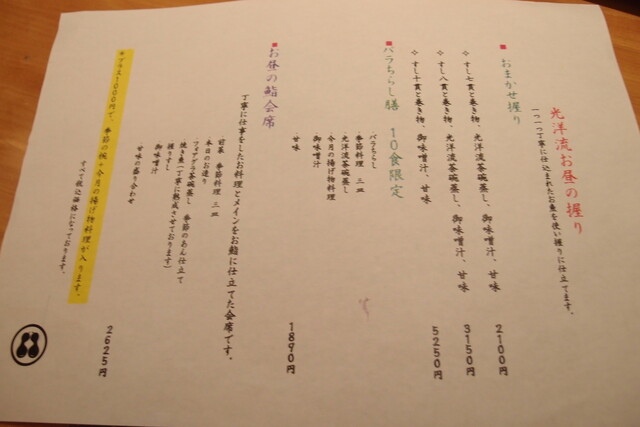 光洋流お昼の握り
一つ一つ丁寧に仕込まれたお魚を使い握りに仕立てます。
■おまかせ握り
✧すし七貫と巻き物、光洋流茶碗蒸し、御味噌汁、甘味 2100円
✧すし八貫と巻き物、光洋流茶碗蒸し、御味噌汁、甘味 3150円
✧すし十貫と巻き物、御味噌汁、甘味 5250円
■バラちらし膳 10食限定
バラちらし
季節料理 三皿
光洋流茶碗蒸し
今月の揚げ物料理
御味噌汁
甘味 1890円
■お昼の鮨会席
丁寧に仕事をしたお料理とメインをお鮨に仕立てた会席です。
前菜 季節料理 三皿
本日のお造り
フォアグラ茶碗蒸し 季節のあん仕立て
焼き魚(丁寧に熟成させております)
握りすし
御味噌汁
甘味の盛り合わせ 2625円
*プラス1000円で、季節の椀・今月の揚げ物料理が入ります。
すべて税込価格になっております。